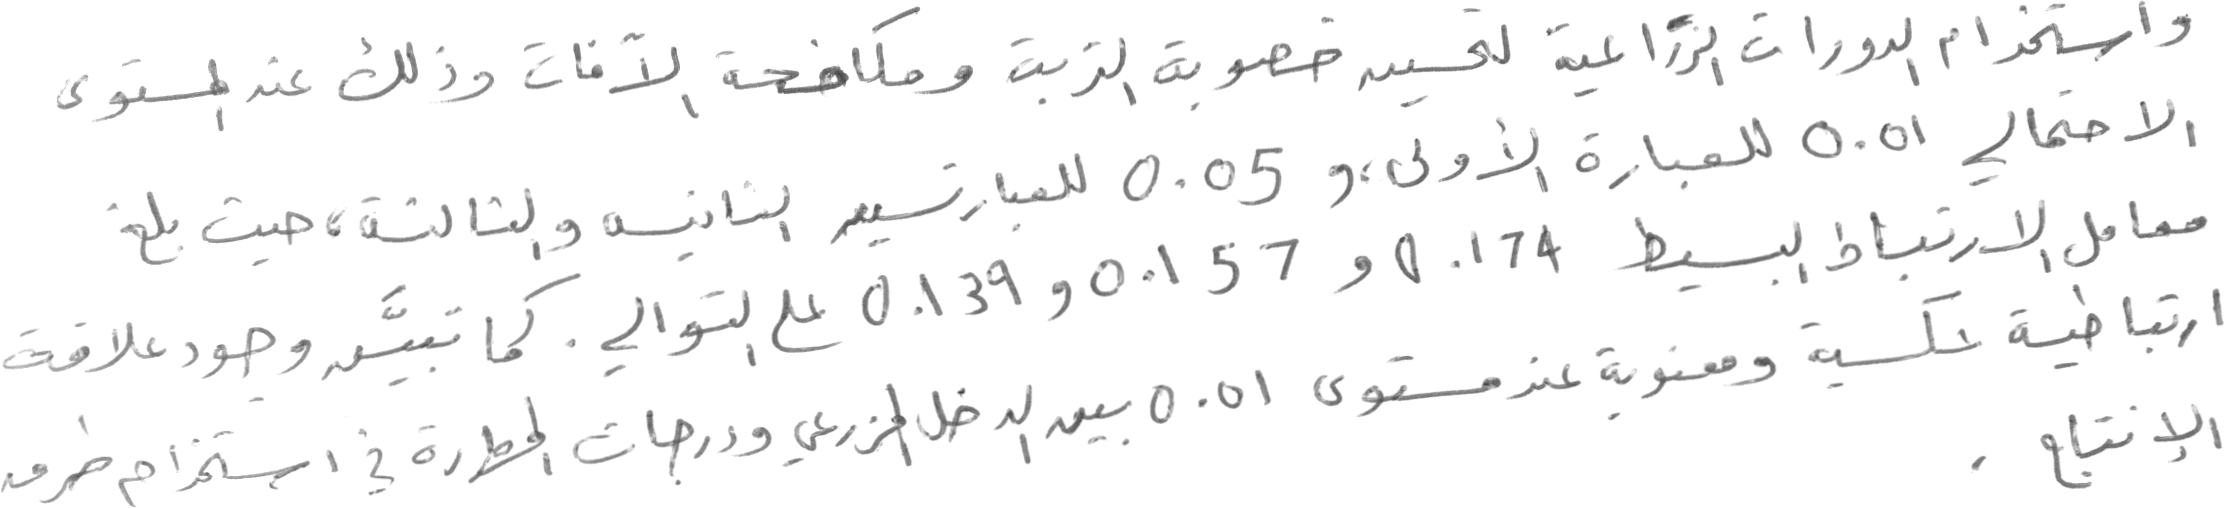 واستخدام الدورات الزّراعية لتحسين خصوبة التربة ومكافحة الآفات وذلك عند المستوى
الاحتمالي 0.01 للعبارة الأولى، و 0.05 للعبارتين الثانية والثالثة، حيث بلغ
معامل الارتباط البسيط 0.174 و 0.157 و 0.139 على التوالي. كما تبيَّن وجود علاقة
ارتباطية عكسية ومعنوية عند مستوى 0.01 بين الدخل المزرعي ودرجات الخطورة في استخدام طرق
الإنتاج .